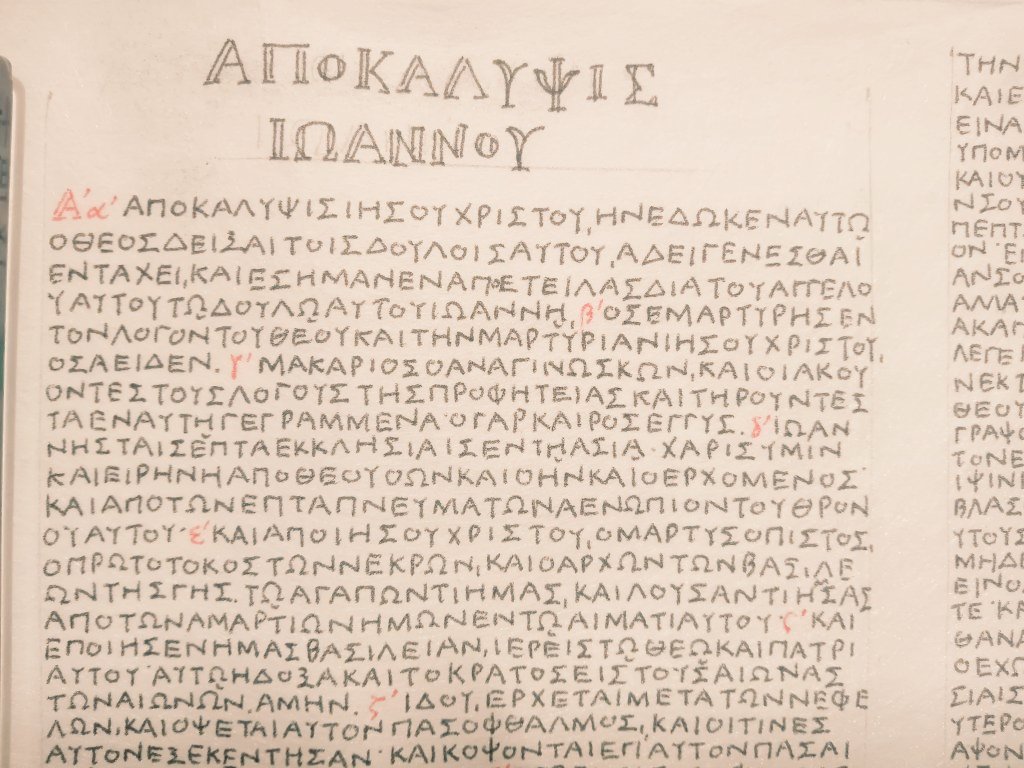 ΑΠΟΚΑΛΥΨΙΣ
ΙΩΑΝΝΟΥ
Α'α' ΑΠΟΚΑΛΥΨΙΣ ΙΗΣΟΥ ΧΡΙΣΤΟΥ, ΗΝ ΕΔΩΚΕΝ ΑΥΤΩ
Ο ΘΕΟΣ ΔΕΙΞΑΙ ΤΟΙΣ ΔΟΥΛΟΙΣ ΑΥΤΟΥ, Α ΔΕΙ ΓΕΝΕΣΘΑΙ
ΕΝ ΤΑΧΕΙ, ΚΑΙ ΕΣΗΜΑΝΕΝ ΑΠΕΤΕΙΛΑΣ ΔΙΑ ΤΟΥ ΑΓΓΕΛΟ
Υ ΑΥΤΟΥ ΤΩ ΔΟΥΛΩ ΑΥΤΟΥ ΙΩΑΝΝΗ, β' ΟΣ ΕΜΑΡΤΥΡΗΣΕΝ
ΤΟΝ ΛΟΓΟΝ ΤΟΥ ΘΕΟΥ ΚΑΙ ΤΗΝ ΜΑΡΤΥΡΙΑΝ ΙΗΣΟΥ ΧΡΙΣΤΟΥ,
ΟΣΑ ΕΙΔΕΝ. γ' ΜΑΚΑΡΙΟΣ Ο ΑΝΑΓΙΝΩΣΚΩΝ, ΚΑΙ ΟΙ ΑΚΟΥ
ΟΝΤΕΣ ΤΟΥΣ ΛΟΓΟΥΣ ΤΗΣ ΠΡΟΦΗΤΕΙΑΣ ΚΑΙ ΤΗΡΟΥΝΤΕΣ
ΤΑ ΕΝ ΑΥΤΗ ΓΕΓΡΑΜΜΕΝΑ· Ο ΓΑΡ ΚΑΙΡΟΣ ΕΓΓΥΣ. δ' ΙΩΑΝ
ΝΗΣ ΤΑΙΣ ΕΠΤΑ ΕΚΚΛΗΣΙΑΙΣ ΕΝ ΤΗ ΑΣΙΑ· ΧΑΡΙΣ ΥΜΙΝ
ΚΑΙ ΕΙΡΗΝΗ ΑΠΟ ΘΕΟΥ Ο ΩΝ ΚΑΙ Ο ΗΝ ΚΑΙ Ο ΕΡΧΟΜΕΝΟΣ·
ΚΑΙ ΑΠΟ ΤΩΝ ΕΠΤΑ ΠΝΕΥΜΑΤΩΝ Α ΕΝΩΠΙΟΝ ΤΟΥ ΘΡΟΝ
ΟΥ ΑΥΤΟΥ· ε' ΚΑΙ ΑΠΟ ΙΗΣΟΥ ΧΡΙΣΤΟΥ, Ο ΜΑΡΤΥΣ Ο ΠΙΣΤΟΣ,
Ο ΠΡΩΤΟΤΟΚΟΣ ΤΩΝ ΝΕΚΡΩΝ, ΚΑΙ Ο ΑΡΧΩΝ ΤΩΝ ΒΑΣΙΛΕ
ΩΝ ΤΗΣ ΓΗΣ. ΤΩ ΑΓΑΠΩΝΤΙ ΗΜΑΣ, ΚΑΙ ΛΟΥΣΑΝΤΙ ΗΜΑΣ
ΑΠΟ ΤΩΝ ΑΜΑΡΤΙΩΝ ΗΜΩΝ ΕΝ ΤΩ ΑΙΜΑΤΙ ΑΥΤΟΥ· ς' ΚΑΙ
ΕΠΟΙΗΣΕΝ ΗΜΑΣ ΒΑΣΙΛΕΙΑΝ, ΙΕΡΕΙΣ ΤΩ ΘΕΩ ΚΑΙ ΠΑΤΡΙ
ΑΥΤΟΥ· ΑΥΤΩ Η ΔΟΞΑ ΚΑΙ ΤΟ ΚΡΑΤΟΣ ΕΙΣ ΤΟΥΣ ΑΙΩΝΑΣ
ΤΩΝ ΑΙΩΝΩΝ. ΑΜΗΝ. ζ' ΙΔΟΥ, ΕΡΧΕΤΑΙ ΜΕΤΑ ΤΩΝ ΝΕΦΕ
ΛΩΝ, ΚΑΙ ΟΨΕΤΑΙ ΑΥΤΟΝ ΠΑΣ ΟΦΘΑΛΜΟΣ, ΚΑΙ ΟΙΤΙΝΕΣ
ΑΥΤΟΝ ΕΞΕΚΕΝΤΗΣΑΝ· ΚΑΙ ΚΟΨΟΝΤΑΙ ΕΠ' ΑΥΤΟΝ ΠΑΣΑΙ
ΤΗΝ
ΚΑΙ Ε
ΕΙΝΑ
ΥΠΟΜ
ΚΑΙ ΟΥ
ΝΣΟΥ
ΠΕΠΤ
ΟΝ ΕΠ
ΑΝΣΟ
ΑΜΙΑ
ΑΚΑΠ
ΛΕΓΕΙ
ΝΕΚΤ
ΘΕΟΥ
ΓΡΑΨΟ
ΤΟΝΕ
ΙΨΙΝΕ
ΒΛΑΣ
ΥΤΟΥΣ
ΜΗΔΕ
ΕΙΝΟΣ
ΤΕ ΚΑ
ΘΑΝΑ
Ο ΕΧΩ
ΣΙΑΙΣ
ΥΤΕΡΟ
ΑΨΟΝ